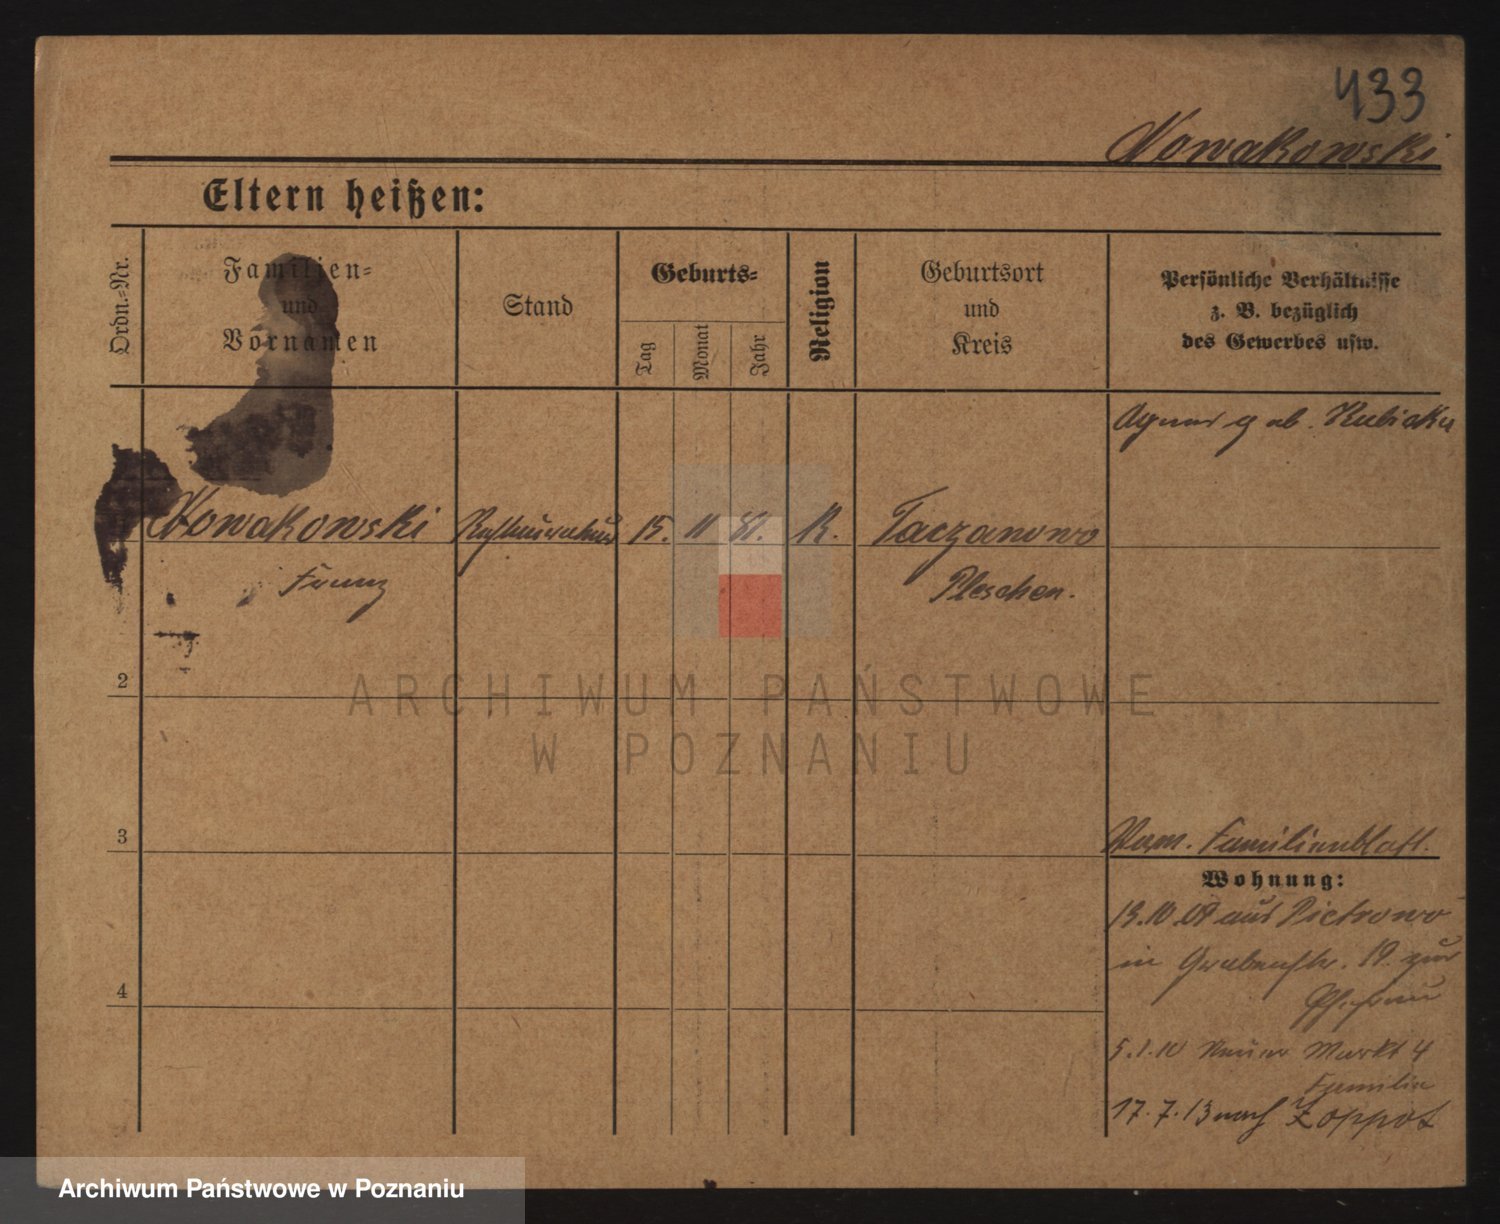 433
Nowakowski
Eltern heißen:
Ordn.-Nr.
Familien-
und
Vornamen
Stand
Geburts-
Tag
Monat
Jahr
Religion
Geburtsort
und
Kreis
Persönliche Verhältnisse
z. B. bezüglich
des Gewerbes usw.
geb. Kubicka
Nowakowski
15. 11 81. K. Taczanowo
Franz
Pleschen.
2
ARCHIWUM PAŃSTWOWE
W POZNANIU
3
Familienblatt.
Wohnung:
13.10.09 aus Pietrowo
in Grabenstr. 19. zur
4
5.1.10 Neuer Markt 4
Familie
17.7.13 nach Zoppot
Archiwum Państwowe w Poznaniu